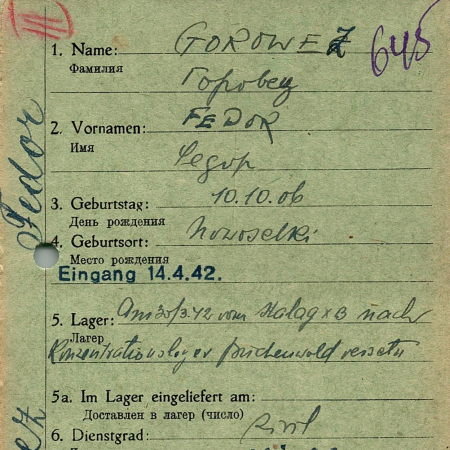 III
645
1. Name: GOROWEZ
Фамилия Горовец
2. Vornamen: FEDOR
Имя Федор
3. Geburtstag: 10.10.06
День рождения
4. Geburtsort: Nowoselki
Место рождения
Eingang 14.4.42.
5. Lager: Am 30/3.42 vom Stalag XB nach
Лагер
Konzentrationslager Buchenwald versetzt
5a. Im Lager eingeliefert am:
Доставлен в лагер (число)
6. Dienstgrad:
Fedor
ez